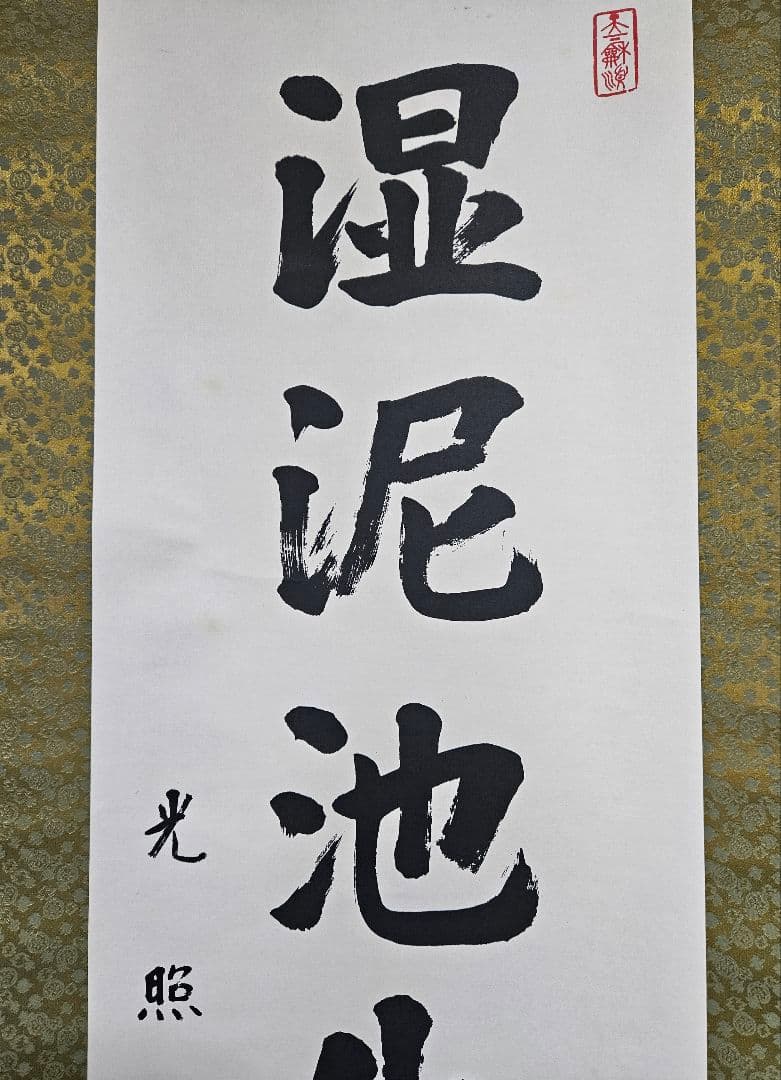 湿泥池
光照